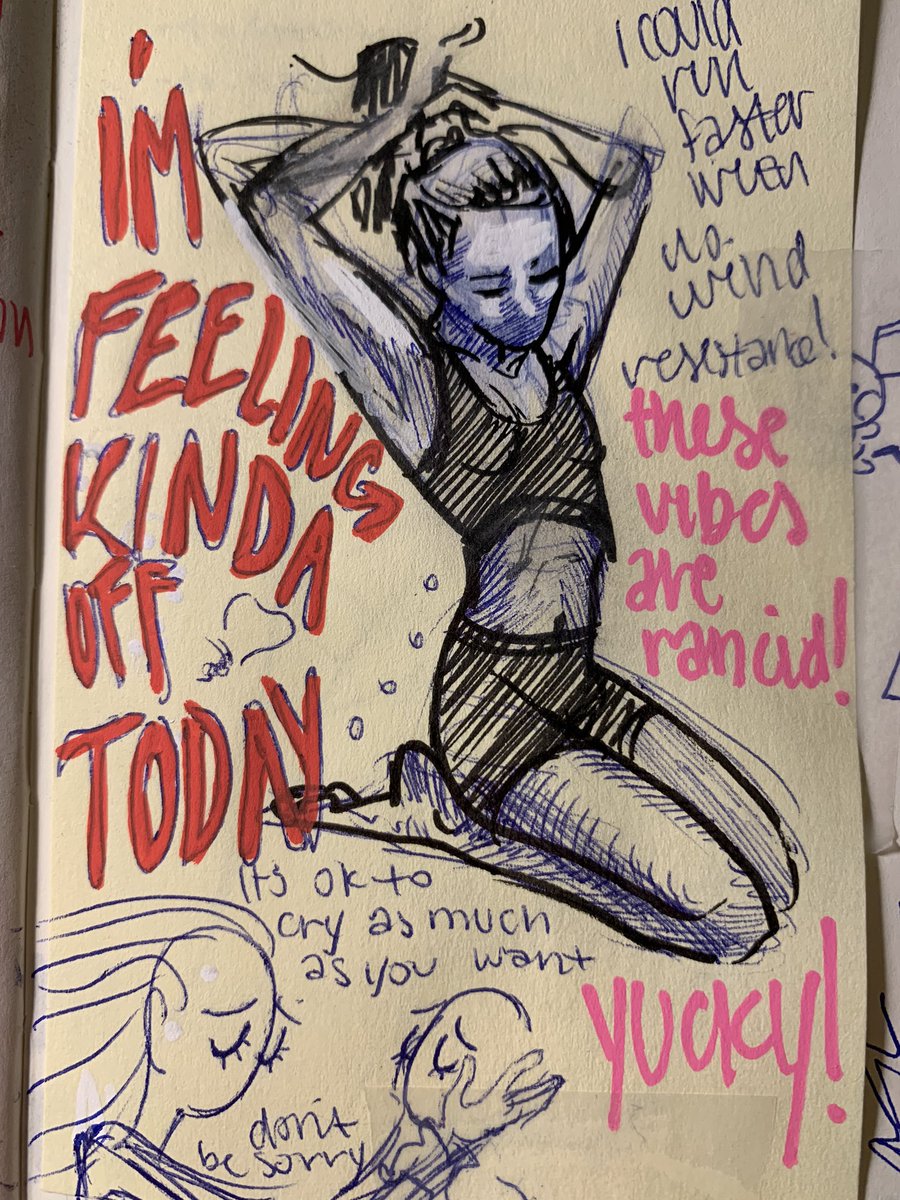 I'M
FEELING
KINDA
OFF
TODAY
i could
run
faster
when
no
wind
resistance!
these
vibes
are
rancid!
it's ok to
cry as much
as you want
YUCKY!
don't
be sorry